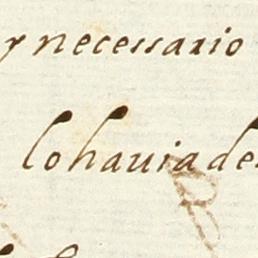 y necessario
lo hauia de